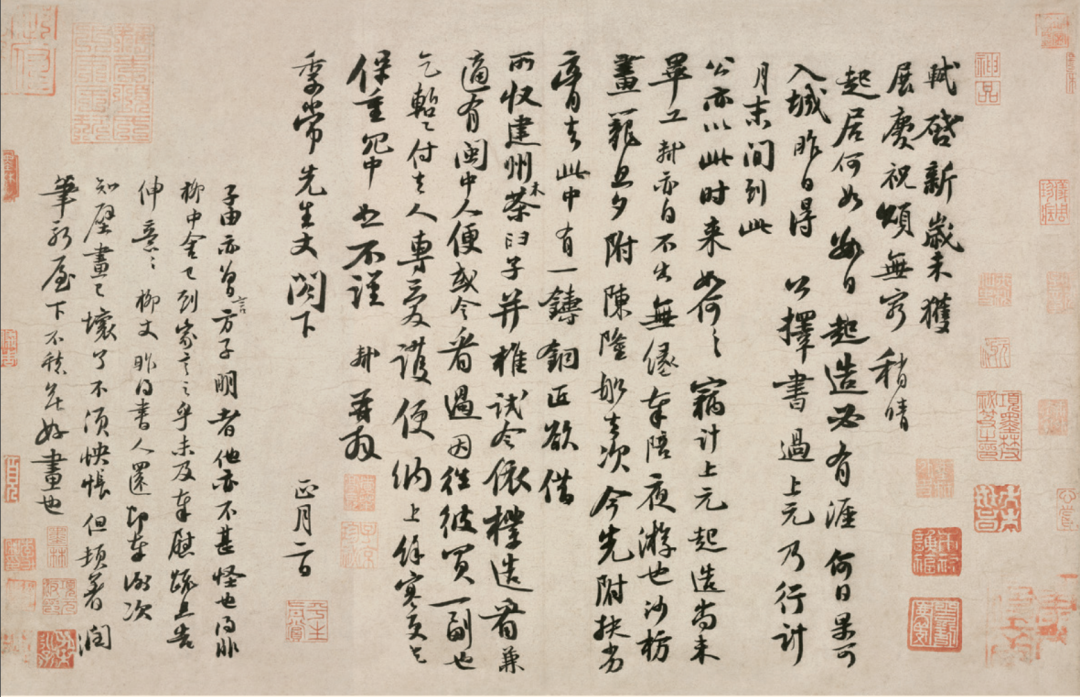 神品
軾啓新歲未獲
展慶祝頌無窮稍晴
起居何如數日起造必有涯何日果可
入城昨日得公擇書過上元乃行計
月末間到此
公亦以此時来如何々竊計上元起造尚未
畢工軾亦自不出無緣奉陪夜游也沙枋
畫籠旦夕附陳隆船去次今先附扶劣
膏去此中有一鑄銅匠欲借
所收建州木茶臼子并椎試令依樣造看兼
適有閩中人便或令看過因往彼買一副也
乞暫付去人專愛護便納上餘寒更乞
保重冗中恕不謹 軾再拜
季常先生丈閣下 正月二日
子由亦曾言方子明者他亦不甚怪也得非
柳中舍已到家言之乎未及奉慰疏且告
伸意々柳丈昨得書人還即奉謝次
知壁畫已壞了不須怏悵但頓著潤
筆新屋下不愁無好畫也